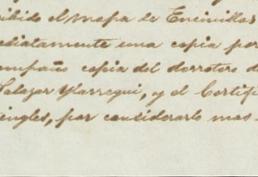 cibido el mapa de Encinillas
ediatamente una copia por
ompaño copia del derrotero de
Salazar Ylarregui, y el Certifi
ingles, por considerarlo mas